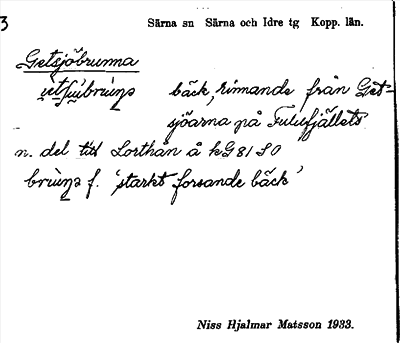 3 Särna sn Särna och Idre tg Kopp. län.
Getsjöbrunna
bäck, rinnande från Get-
sjöarna på Fulufjällets
n. del till Lorthån å kG 81 S O
f. 'starkt forsande bäck'
Niss Hjalmar Matsson 1933.